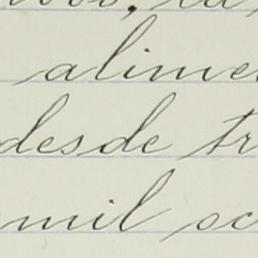 alime
desde tr
mil oc